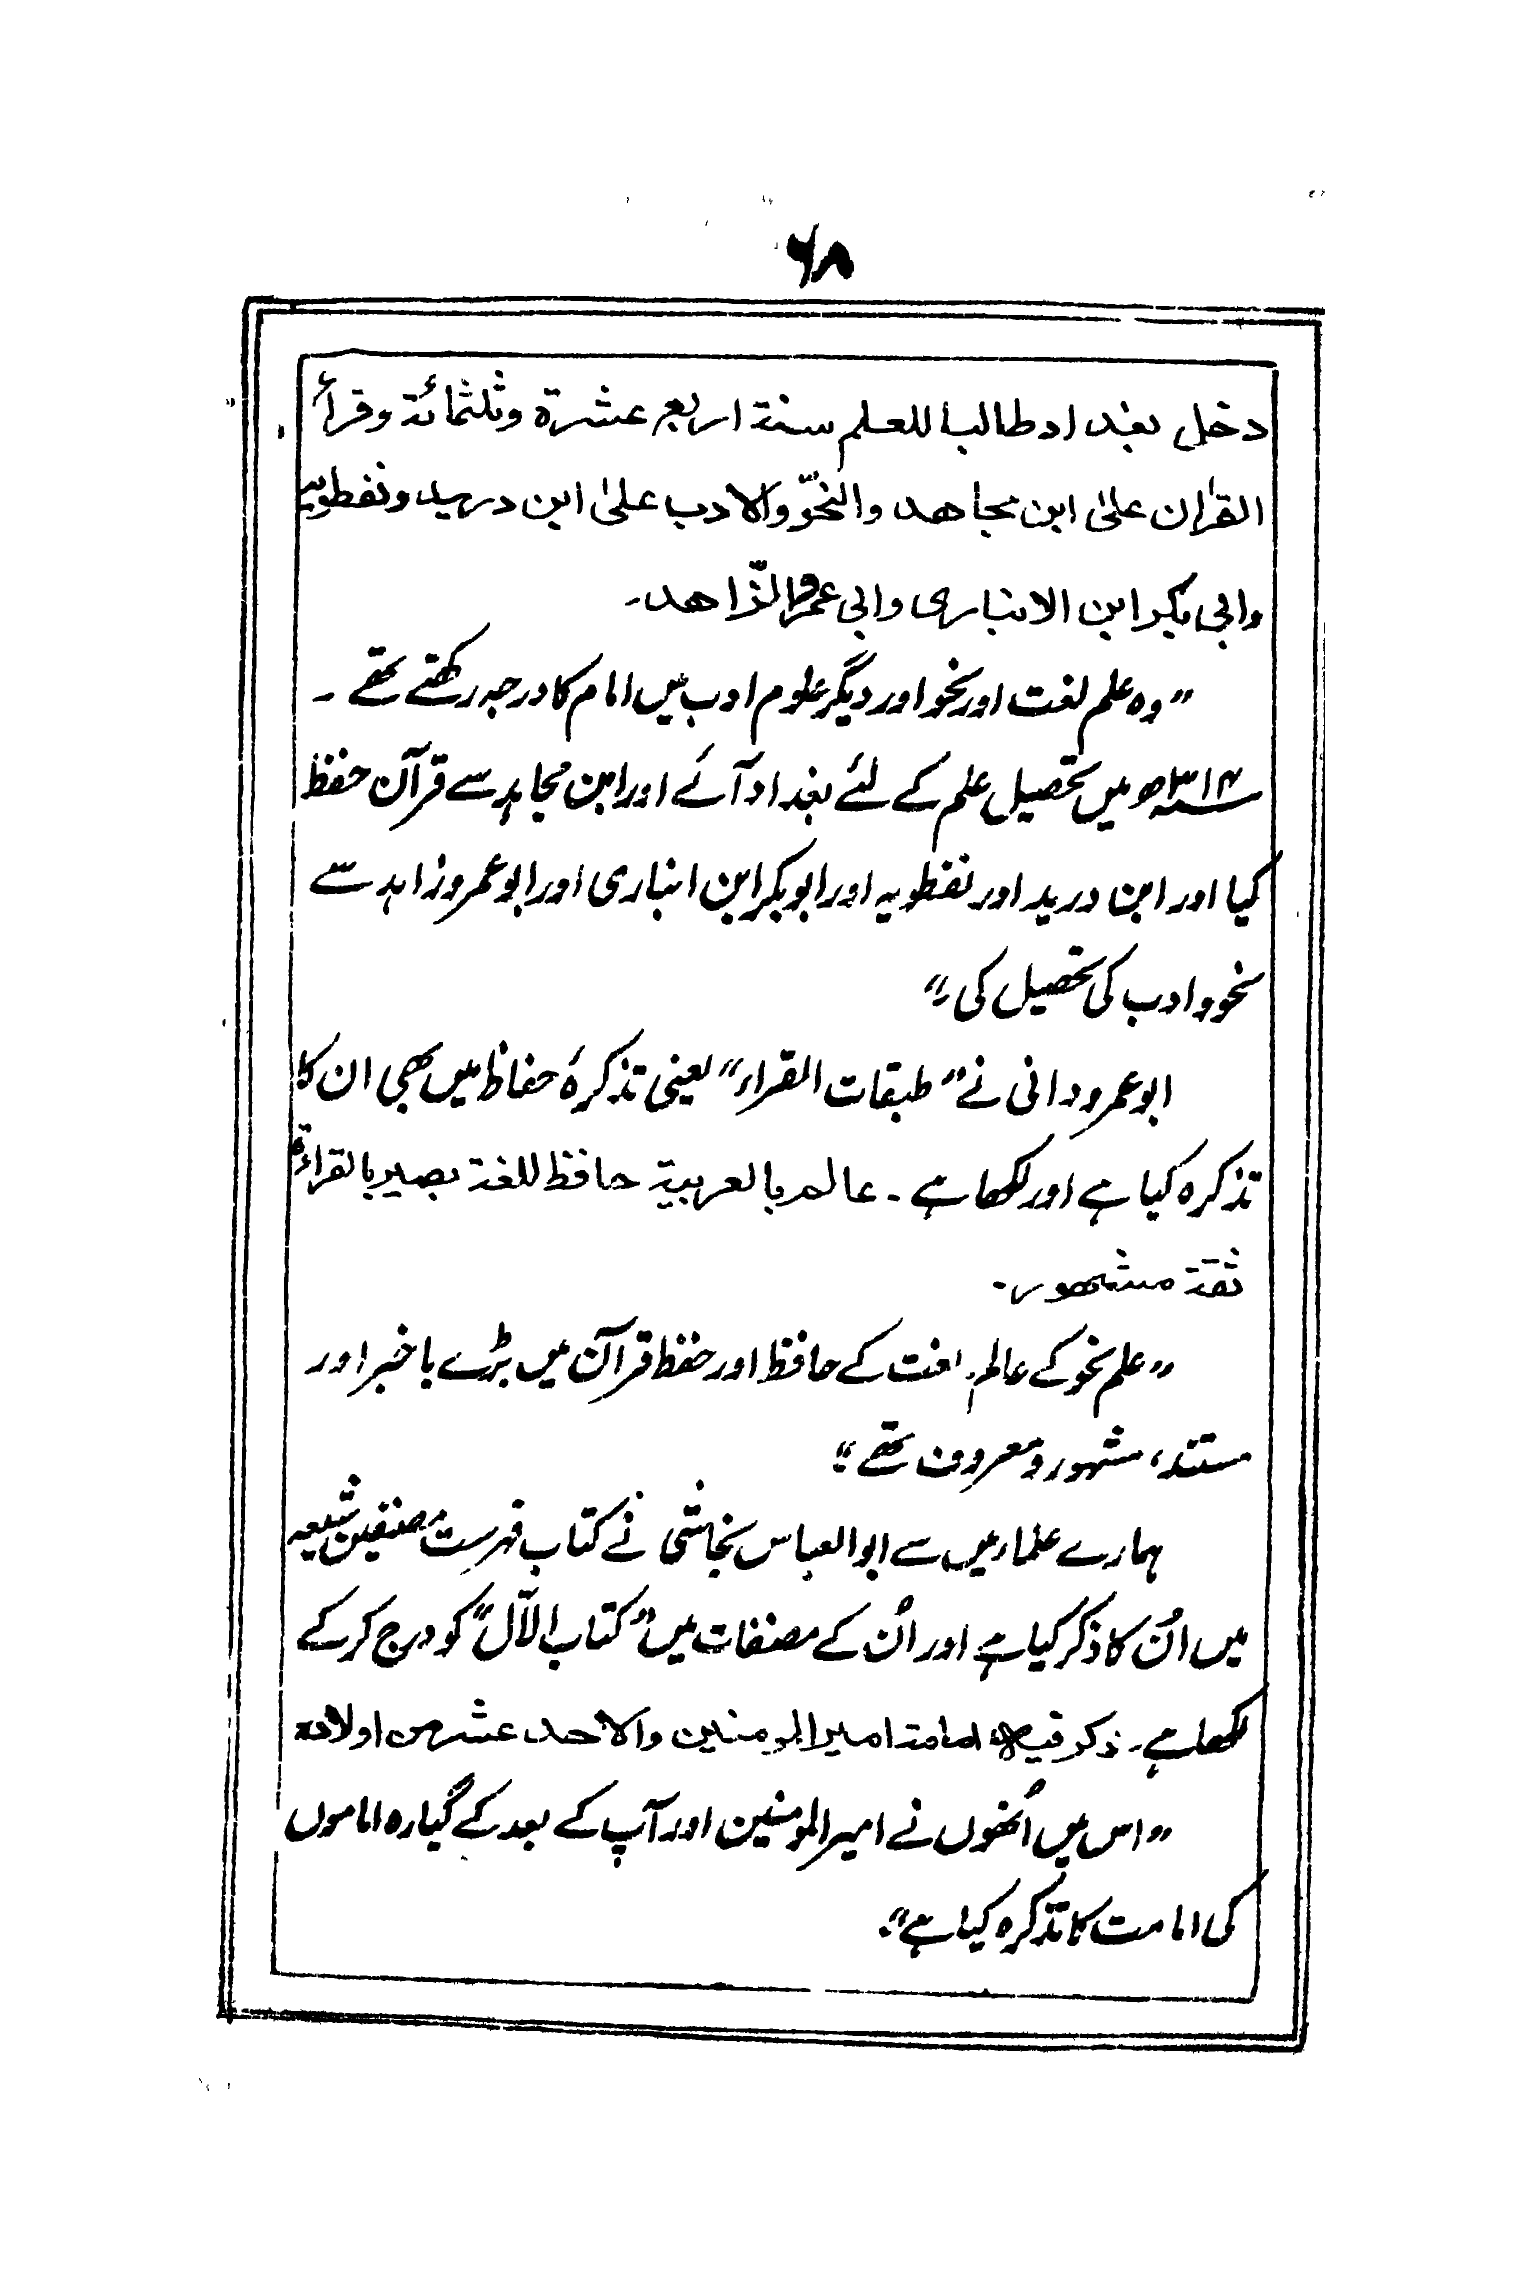 ۶۸
دخل بغداد طالبا للعلم سنة اربع عشرة وثلثمائة وقرأ
القرٰان علیٰ ابن مجاهد والنحوّ والادب علیٰ ابن دريد ونفطويه
وابی بکر ابن الانباری وابی عمرو الزّاهد۔
”وہ علم لغت اور نحو اور دیگر علوم ادب میں امام کا درجہ رکھتے تھے ۔
۳۱۴ھ میں تحصیل علم کے لئے بغداد آئے اور ابن مجاہد سے قرآن حفظ
کیا اور ابن درید اور نفطویہ اور ابوبکر ابن انباری اور ابو عمرو زاہد سے
نحو و ادب کی تحصیل کی ۔“
ابو عمرو دانی نے ”طبقات القراء“ یعنی تذکرۂ حفاظ میں بھی ان کا
تذکرہ کیا ہے اور لکھا ہے ۔ عالم بالعربية حافظ للغة بصير بالقراءة
ثقة مشهور۔
”علم نحو کے عالم، لغت کے حافظ اور حفظ قرآن میں بڑے باخبر اور
مستند، مشہور و معروف تھے ۔“
ہمارے علماء میں سے ابو العباس نجاشی نے کتاب فہرست مصنفین شیعہ
میں اُن کا ذکر کیا ہے اور اُن کے مصنفات میں ”کتاب الآل“ کو درج کر کے
لکھا ہے۔ ذکر فيه امامة امير المومنين والاحد عشر من اولاده
”اس میں اُنھوں نے امیر المومنین اور آپ کے بعد کے گیارہ اماموں
کی امامت کا تذکرہ کیا ہے“۔